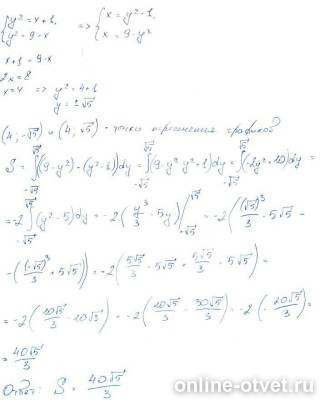 { y² = x+1, => { x = y²-1,
{ y² = 9-x { x = 9-y²
x+1 = 9-x
2x=8
x=4 => y² = 4+1
y = ±√5
(4; -√5) и (4; √5) - точки пересечения графиков
S = ∫_{-√5}^{√5} ((9-y²) - (y²-1))dy = ∫_{-√5}^{√5} (9-y²-y²+1)dy = ∫_{-√5}^{√5} (-2y²+10)dy =
= -2 ∫_{-√5}^{√5} (y²-5)dy = -2 (y³/3 - 5y) |_{-√5}^{√5} = -2 ((√5)³/3 - 5√5 -
- ((-√5)³/3 + 5√5)) = -2 (5√5/3 - 5√5 + 5√5/3 - 5√5) =
= -2 (10√5/3 - 10√5) = -2 (10√5/3 - 30√5/3) = -2 (- 20√5/3) =
= 40√5/3
Ответ: S = 40√5/3
online-otvet.ru